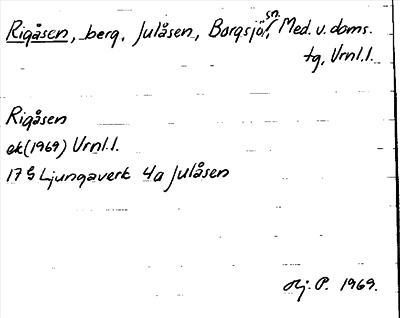 Rigåsen, berg, Julåsen, Borgsjö sn, Med. v. doms.
tg, Vrnl.l.
Rigåsen
ek (1969) Vrnl.l.
17 G Ljungaverk 4a Julåsen
Hj. P. 1969.